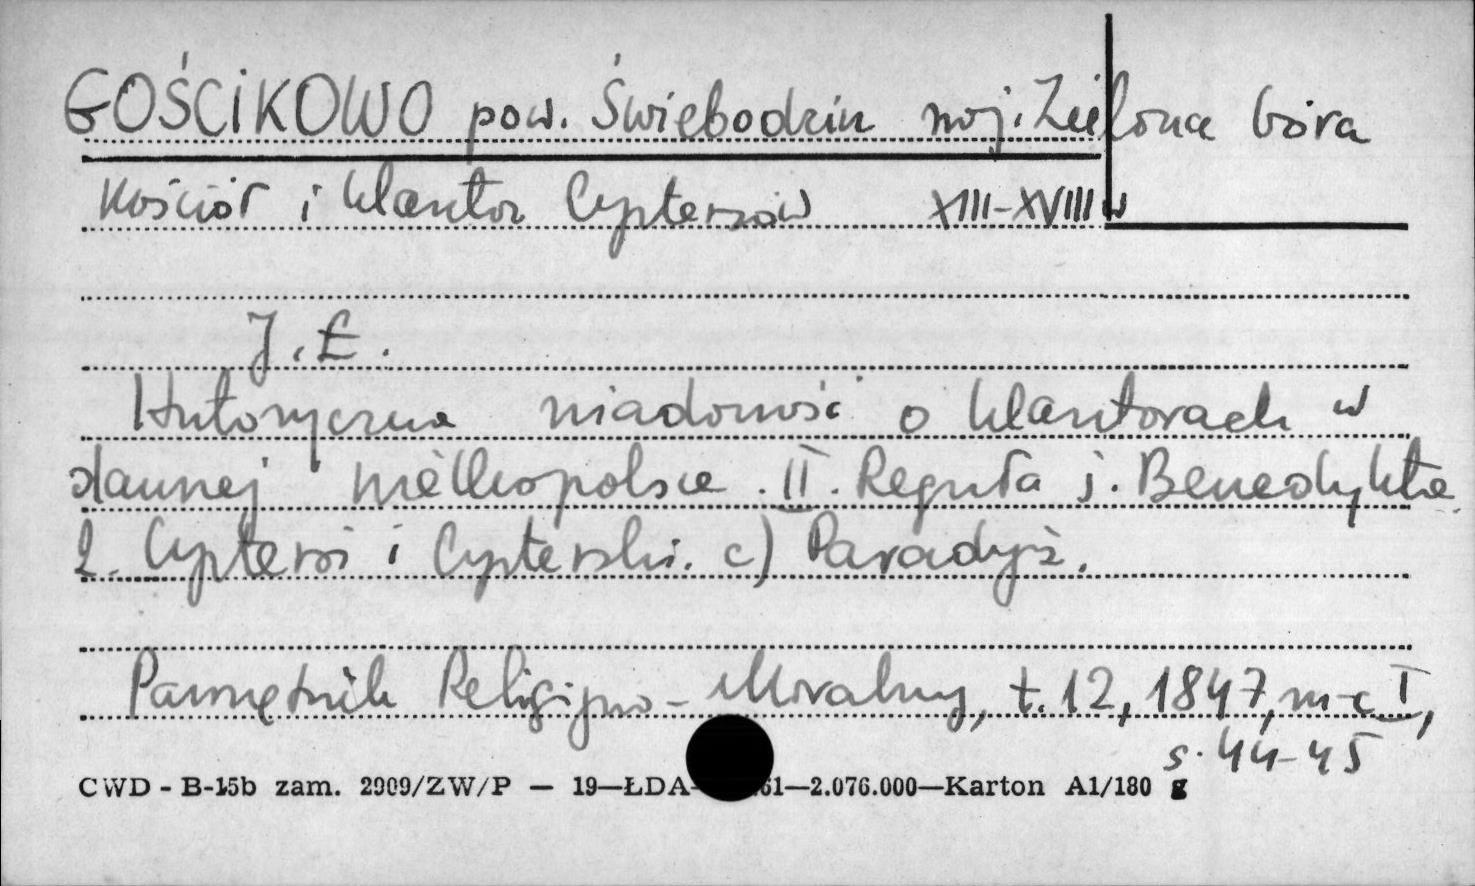 GOŚCIKOWO pow. Świebodzin woj. Zielona Góra
Kościół i klasztor Cystersów XIII-XVIII w
J. Ł.
Historyczna wiadomość o klasztorach w
dawnej Wielkopolsce. II. Reguła ś. Benedykta
2. Cystersi i Cysterski. c) Paradyż.
Pamiętnik Religijno-Moralny, t. 12, 1847, m-c I,
s. 44-45
CWD - B-15b zam. 2909/ZW/P — 19—ŁDA- 61—2.076.000—Karton A1/180 g